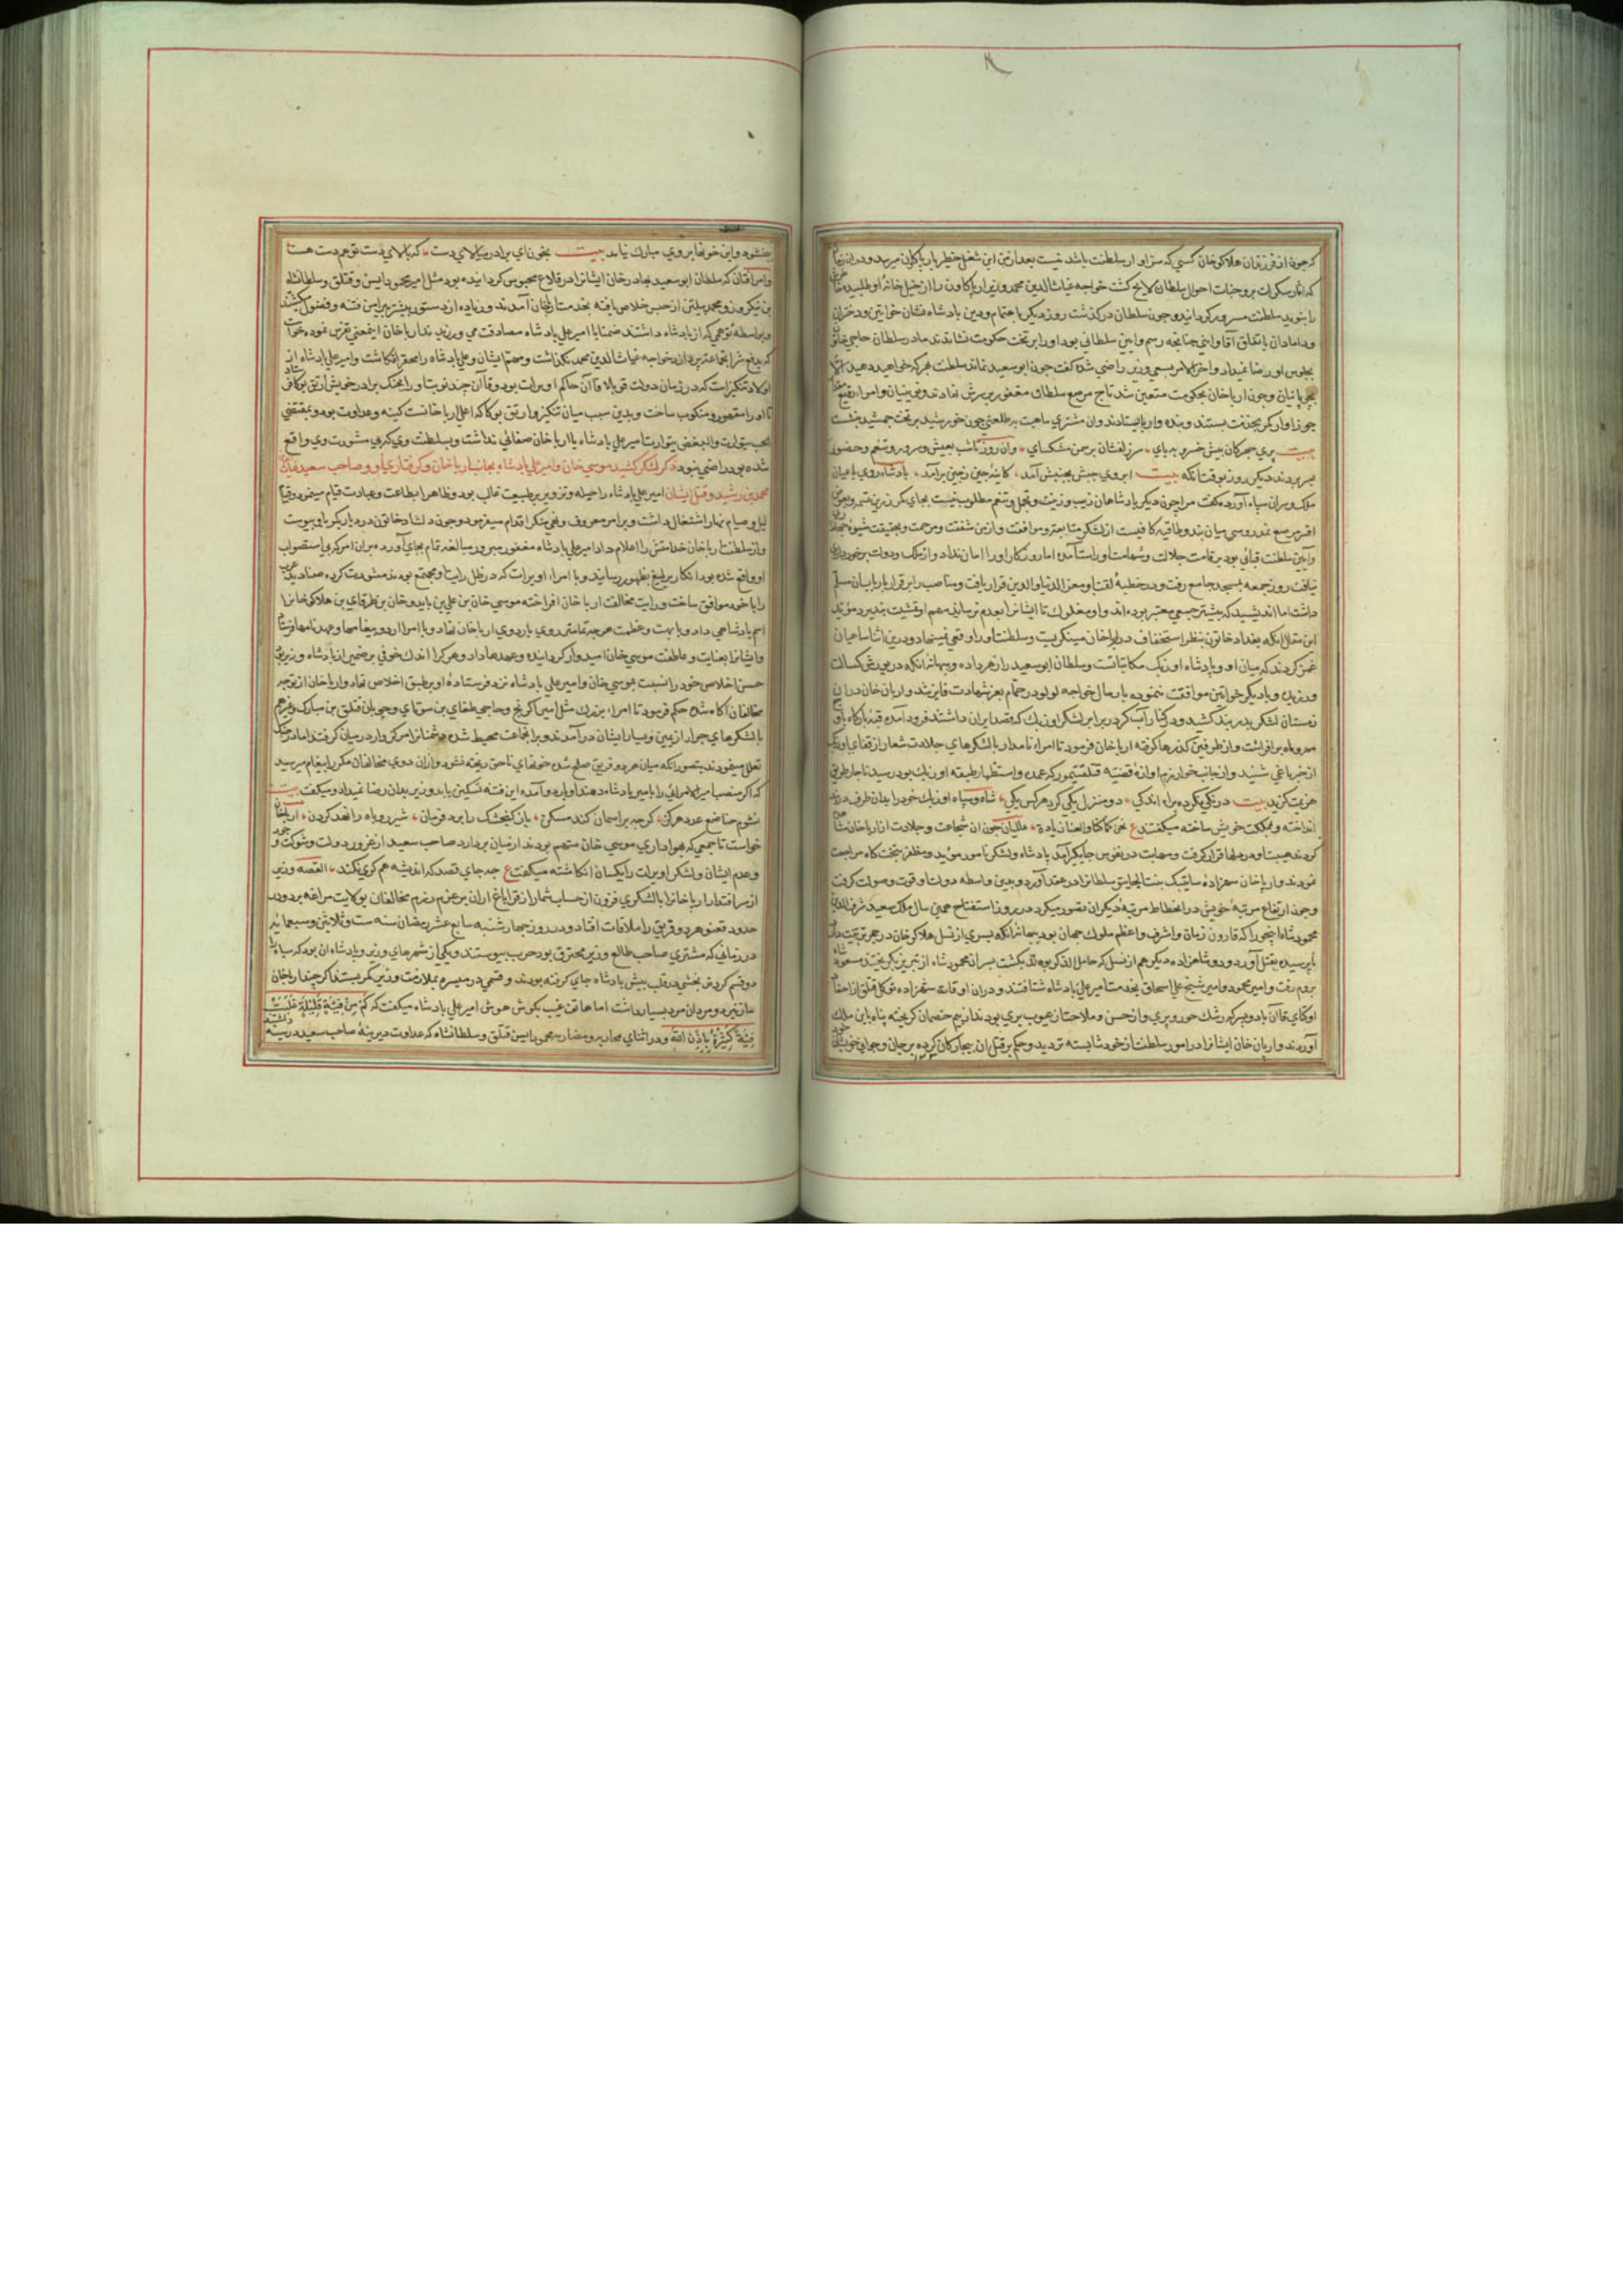 که چون از فرزندان هلاکو خان کسی که سزاوار سلطنت باشد نیست بعد ازین این شغل خطیر بارپاکاون میرسد و در ان
که اثار سکرات بر وجنات احوال سلطان لایح کشت خواجه غیاث الدین محمد وزیر ارپاکاون را از خیل خانه او طلبید
را بنوید سلطنت مسرور کردانید و چون سلطان درکذشت روز دیکر باهتمام و دین بادشاه نشان خواتین و دختران
و دامادان باتفاق آقا و اینی چنانچه رسم و ایین سلطانی بود او را بر تخت حکومت نشاندند مادر سلطان حاجی خاتون
بجلوس او رضا نمیداد و اخر الامر بسعی وزیر راضی شد کفت چون ابو سعید نماند سلطنت هر که خواهید دهید
و چون ارپا خان بحکومت متعین شد تاج مرصع سلطان مغفور بر سرش نهادند و نوینیان و امرا
جوزاوار کمر بخدمت بستند و بنده وار بایستادند وان مشتری ماهیت بر طلعتی چون خورشید بر تخت جمشید بنشست
بیت پری پیکران پیش خسرو بپای • سر زلفشان بر سمن مشکسای • وان روز تا شب بعیش و سرور و تنعم و حضور
بسر بردند دیکر روز بوقت انکه بیت ابروی حبش بجنبش آمد • کایینه چین ز چین برآمد • بادشاه روی باعیان
ملک و سران سپاه آورده کفت مرا چون دیکر بادشاهان زیب و زینت و تجمل و تنعم مطلوب نیست بجای کمر زرین تسمه و بعوض
افسر مرصع نمد روسی میان بند و طاقیه کافیست از لشکر متابعت و موافقت و از من شفقت و مرحمت و بحقیقت شیوه
و آیین سلطنت قبائی بود بر قامت جلالت و شهامت او راست آمده اما روزکار او را امان نداد و از ملک و دولت برخورداری
نیافت روز جمعه بمسجد جامع رفت و در خطبه لقب او معز الدنیا والدین قرار یافت و مناصب را بر قرار باربابان مسلم
داشت اما اندیشید که بیشتر جمعی معتبر بوده اند و او مغلوک تا ایشانرا بعدم نرساند مهم او تمشیت نپذیرد موید
این مقال انکه بغداد خاتون بنظر استخفاف در ارپا خان مینکریست و سلطنت او را وقعی نمینهاد و درین اثنا ساعیان
غمز کردند که میان او و پادشاه اوزبک مکاتباتست و سلطان ابو سعید را زهر داده و ببهانه انکه در بودش کسالت
ورزیده و با دیکر خواتین موافقت ننموده بارمال خواجه لولو در حمام بعز شهادت فایز شد و ارپان خان در ان
زمستان لشکر بدربند کشید و در کنار آب کر در برابر لشکر اوزبک که قصد ایران داشتند فرود آمده قبه بارکاه
مهر و ماه برافراشت و از طرفین کذرها کرفته ارپا خان فرمود تا امراء نامدار با لشکرهای جلادت شعار از قفای اوزبک
از خبر یاغی شنید و از جانب خوارزم اوازه قضیه قتلقتیمور که عمده و استظهار طبقه اوزبک بود رسید ناچار طریق
هزیمت کزید بیت درنکی نکرد براه اندکی • دو منزل یکی کرد هر کس یکی • شاه و سپاه اوزبک خود را بدان طرف
انداخته و مملکت خویش ساخته میکفتند ع نحن کما کنا و العنا زیاده • ملکیان چون ان شجاعت و جلادت از ارپا خان مشاهده
کردند هیبت او در دلها قرار کرفت و مهابت در نفوس جایکیر آمد بادشاه و لشکر نامور مؤید و مظفر بتخت کاه مراجعت
نمودند و ارپا خان شهزاده ساتی بک بنت الجایتو سلطانرا در عقد آورد و بدین واسطه دولت او قوت و صولت کرفت
و چون ارتفاع مرتبه خویش در انحطاط مرتبه دیکران تصور میکرد در روز استفتاح همین سال ملک سعید شرف الدین
محمود شاه اینجو را که قارون زمان و اشرف و اعظم ملوک جهان بود ببهانه انکه پسری از نسل هلاکو خان در حجر تربیت دارد
ناپرسیده بقتل آورد و دو شاهزاده دیکر هم از نسل که حامل الذکر بودند بکشت پسران محمود شاه از تبریز بکریختند مسعود شاه
بروم رفت و امیر محمود و امیر شیخ علی اسحاق بخدمت امیر علی بادشاه شتافتند و دران اوقات شهزاده توکل قتلق از احفاد
اوکتای قاآن با دو پسر که رشک حور و پری و از حسن و ملاحت از عیوب بری بودند از بیم خصمان کریخته پناه باین ملک
آوردند و ارپان خان ایشانرا در امور سلطنت از خود شایسته تر دید و حکم بر قتل ان بیچارکان کرده بر جان و جوانی خویش
ببخشود و این خونها بر وی مبارک نیامد بیت بخون ای برادر میالای دست • که بالای دست تو هم دست هست
و امراقان که سلطان ابو سعید بهادر خان ایشانرا در قلاع محبوس کردانیده بود مثل امیر محمود ایسن قتلق و سلطانشاه
بن نیکروز و محمد پیلتن از حبس خلاص یافته بخدمت ارپا خان آمدند و زیاده از دستور پیشتر پیرامن فتنه و فضول کشتند
و بواسطه توهمی که از بادشاه داشتند ضمنا با امیر علی بادشاه مصادقت می ورزیدند ارپا خان اینمعنی تفرس نموده خواست
که بدفع شر انجماعت پردازد خواجه غیاث الدین محمد نکذاشت و مهم ایشان و علی بادشاه را محقر انکاشت و امیر علی بادشاه از
اولاد تنکیز است که در زمان دولت قوبلا قاآن حاکم اویرات بود و قاآن چند نوبت او را بجنک برادر خویش اریق بوکا فرستاد
تا او را مقهور و منکوب ساخت و بدین سبب میان تنکیز و اریق بوکا که اعلی ارپا خانست کینه و عداوت بود و بمقتضی
الحب یتوارث والبغض یتوارث امیر علی بادشاه با ارپا خان صفائی نداشت و بسلطنت وی که بی مشورت وی واقع
شده بود راضی نبود ذکر لشکر کشیدن موسی خان و امیر علی بادشاه بجانب ارپا خان و کرفتاری او و صاحب سعید غیاث الدین
محمد بن رشید و قتل ایشان امیر علی بادشاه را حیله و تزویر بر طبیعت غالب بود و ظاهرا بطاعت و عبادت قیام مینمود و قیام
لیل و صیام نهار اشتغال داشت و بر امر معروف و نهی منکر اقدام میفرمود و چون دلشاد خاتون در دیار بکر باو پیوست
و از سلطنت ارپا خان خدامتش را اعلام داد امیر علی بادشاه مغفور مبرور مبالغه تمام بجای آورده بران امر که بی استصواب
او واقع شده بود انکار بلیغ بظهور رسانید و با امراء اویرات که در ظل رایت او مجتمع بودند مشورت کرده صنادید عرب
را با خود موافق ساخت و رایت مخالفت ارپا خان افراخته موسی خان بن علی بن بایدو خان بن طرقای بن هلاکو خانرا
اسم پادشاهی داد و با ابهت و عظمت هر چه تمامتر روی باردوی ارپا خان نهاد و با امرا اردو پیغامها و عهد نامها فرستاد
و ایشانرا بعنایت و عاطفت موسی خان امیدوار کردانیده وعدها داد و هر کرا اندک خوفی بر ضمیر از بادشاه و وزیر بود
حسن اخلاص خود را نسبت بموسی خان و امیر علی بادشاه نزد فرستاده او بر طبق اخلاص نهاد و ارپا خان از توجه
مخالفان اکاه شده حکم فرمود تا امراء بزرک مثل امیر اکرنج و حاجی طغای بن سوتای و چوپان قتلق بن مبارک و غیرهم
با لشکرهای جرار از یمین و یسار ایشان در آمدند و بران جماعت محیط شده دشمنانرا مرکزوار در میان کرفتند اما در جنک
تعلل مینمودند بتصور انکه میان هر دو فریق صلح شده خونهای ناحق ریخته نشود و ازان دوی مخالفان مکرر پیغام میرسید
که اکر منصب امیر الامرائی را بامیر بادشاه دهند اوباره وآمده این فتنه تسکین یابد وزیر بدان رضا نمیداد و میکفت بیت
نشوم خاضع عدو هرکز • کرچه بر اسمان کند مسکن • باز کنجشک را برد فرمان • شیر روباه را نهد کردن • ارپا خان
خواست تا جمعی که بهواداری موسی خان متهم بودند از میان بردارد صاحب سعید از غرور دولت و شوکت خود
و عدم ایشان و لشکر اویرات را یکسان انکاشته میکفت ع چه جای قصد که اندیشه هم کری نکند • القصه وزیر
از سر اقتدار ارپا خانرا با لشکری فزون از حساب شمار از قراباغ اران بر عزم رزم مخالفان بولایت مراغه برد و در
حدود تغتو هر دو فریق را ملاقات افتاد و در روز چهارشنبه سابع عشر رمضان سنه ست و ثلاثین و سبعمایه
در زمانی که مشتری صاحب طالع وزیر محترق بود حرب پیوستند و یکی از شهرهای وزیر و بادشاه ان بود که سپاه را
دو قسم کرده بخشی در قلب پیش بادشاه جای کرفته بودند و قسمی در میسره بملازمت وزیر کمر بستند اکرچه ارپا خان
ساز نبرد و مردان مرد بسیار داشت اما هاتف غیب بکوش هوش امیر علی بادشاه میکفت که کم من فئة قلیلة غلبت
فئة کثیرة باذن الله و در اثنای محاربه و مضاربه محمود ایسن قتلق و سلطانشاه که عداوت دیرینه صاحب سعید در سینه داشتند